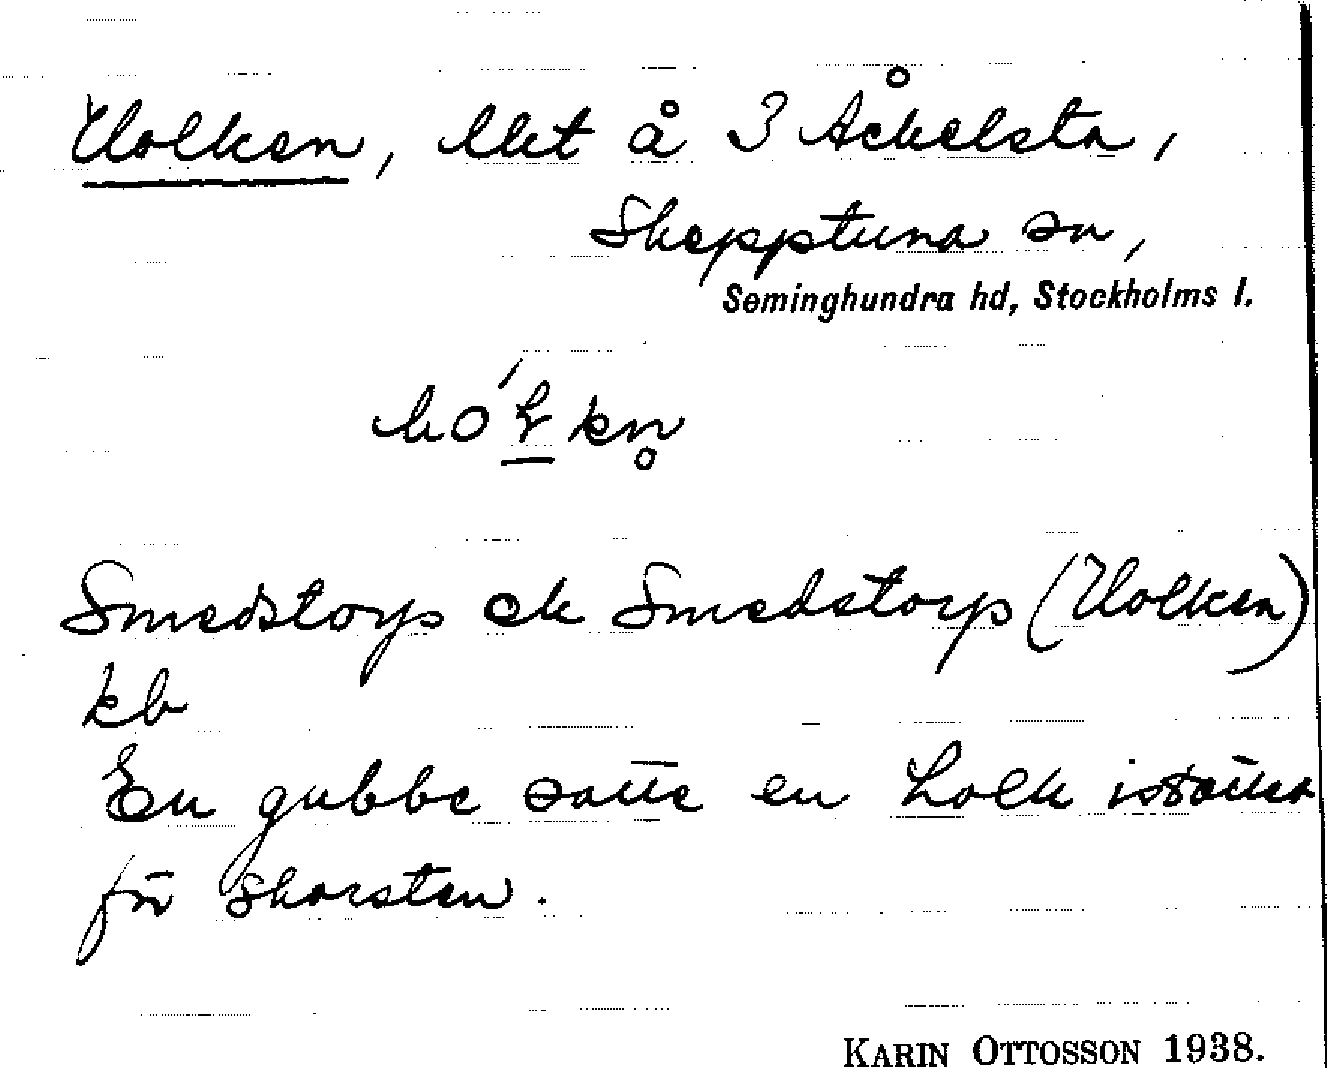 Holken, lht å 3 Åckelsta,
Skepptuna sn,
Seminghundra hd, Stockholms l.
hó'ļkn̥
Smedstorp ek Smedstorp (Holken)
kb
En gubbe satte en holk istället
för skorsten.
KARIN OTTOSSON 1938.